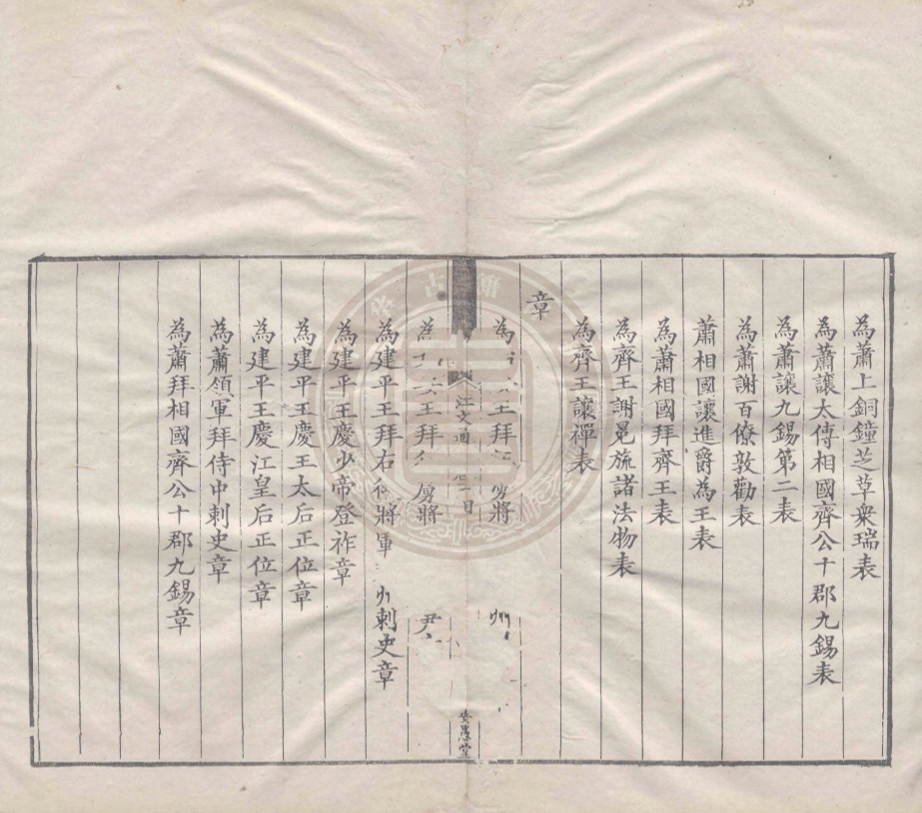 為蕭上銅鐘芝草衆瑞表
為蕭讓太傅相國齊公十郡九錫表
為蕭讓九錫第二表
為蕭謝百僚敦勸表
蕭相國讓進爵為王表
為蕭相國拜齊王表
為齊王謝冕旒諸法物表
為齊王讓禪表
章
為王拜將州
江文通目
安愚堂
為王拜將尹
為建平王拜右將軍州刺史章
為建平王慶少帝登祚章
為建平王慶王太后正位章
為建平王慶江皇后正位章
為蕭領軍拜侍中刺史章
為蕭拜相國齊公十郡九錫章